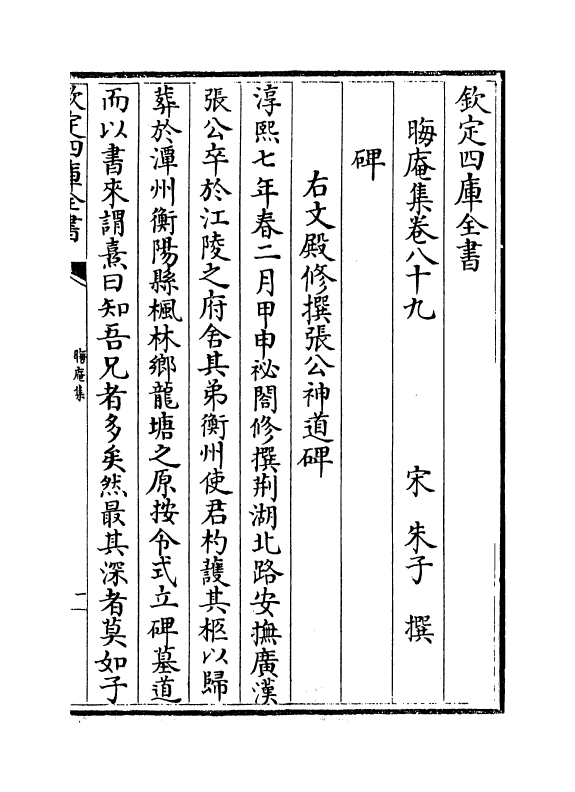 欽定四庫全書
晦庵集卷八十九　宋　朱子　撰
碑
右文殿修撰張公神道碑
淳熙七年春二月甲申祕閣修撰荆湖北路安撫廣漢
張公卒於江陵之府舍其弟衡州使君杓䕶其柩以歸
葬於潭州衡陽縣楓林鄉龍塘之原按令式立碑墓道
而以書來謂熹曰知吾兄者多矣然最其深者莫如子
欽定四庫全書
晦庵集